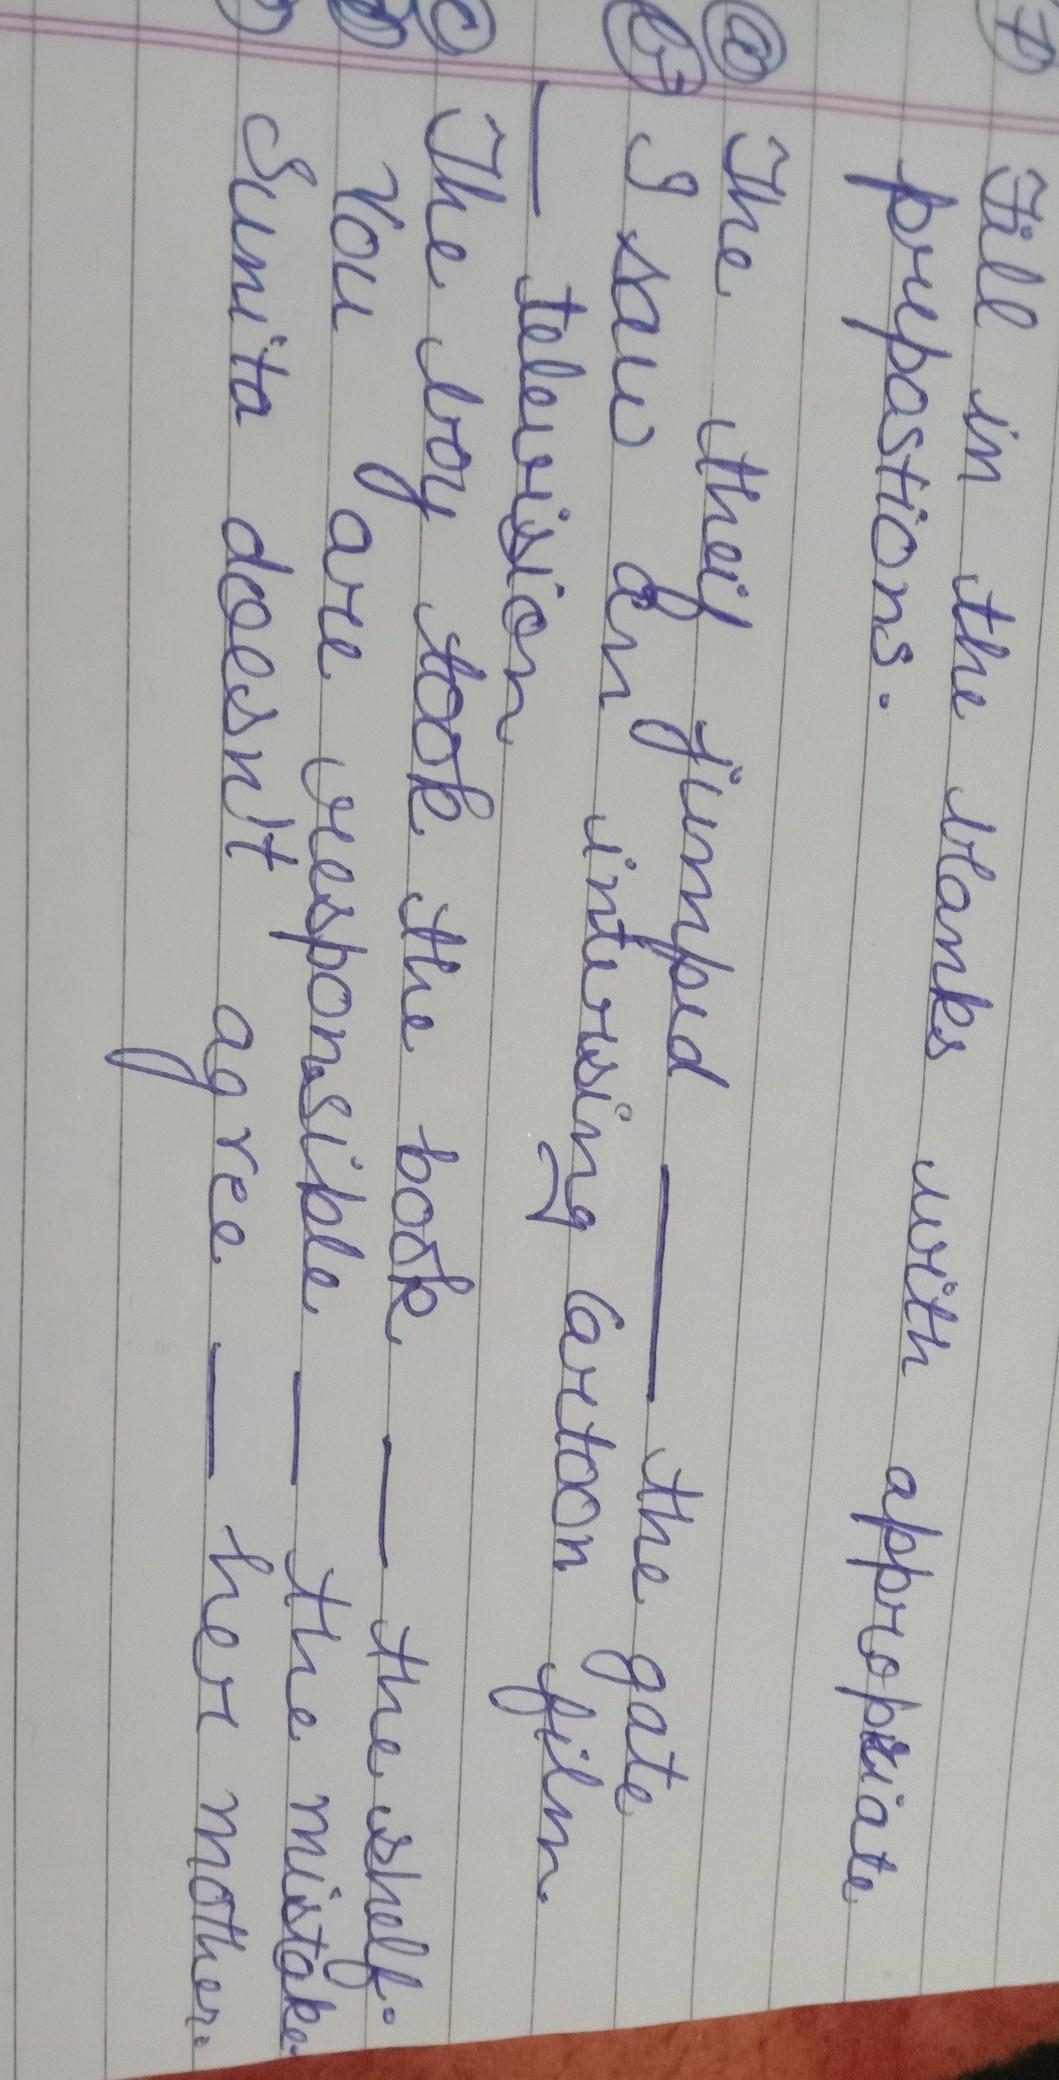 7 Fill in the blanks with appropriate
prepastions.
a The theif jumped ___ the gate
b I saw an intersing Cartoon film
___ television
c The boy took the book ___ the shelf.
You are responsible ___ the mistake.
Sunita doesn't agree ___ her mother.